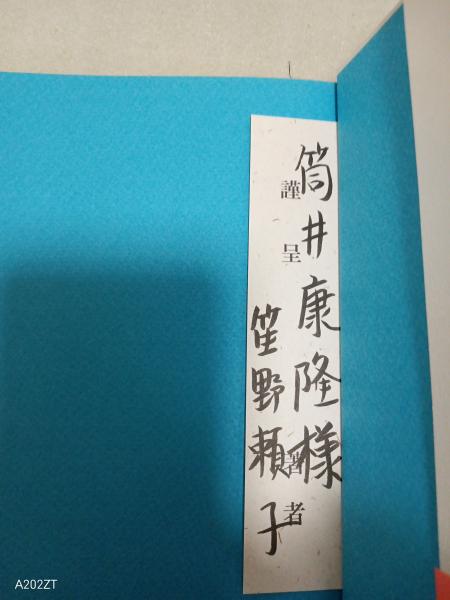 筒井康隆様
謹呈 著者
笙野頼子
A202ZT